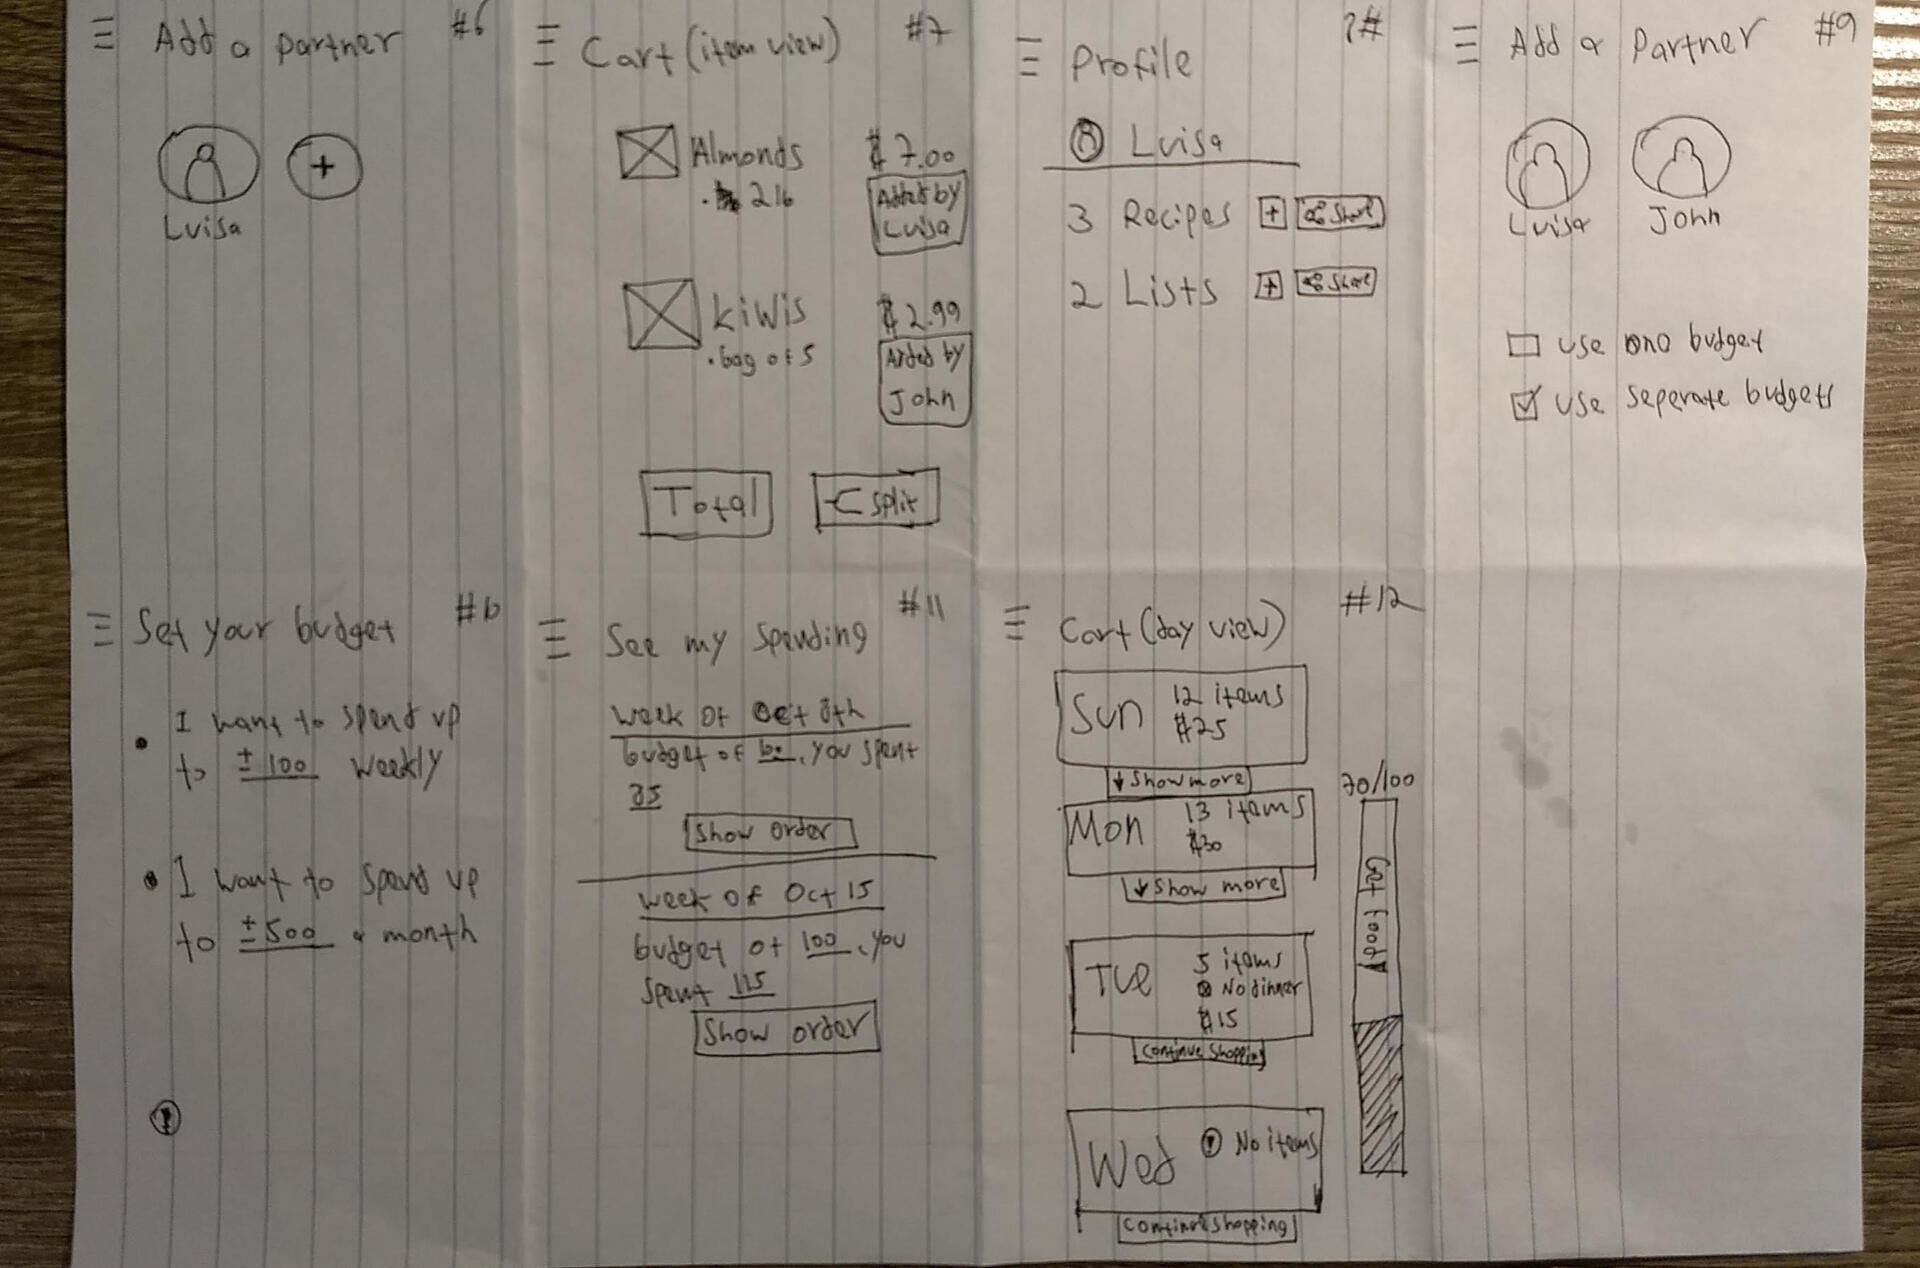 Add a partner #6
+
Luisa
Cart (item view) #7
Almonds $7.00
. 2 lb
Added by
Luisa
Kiwis $2.99
. bag of 5
Added by
John
Total
Split
Profile
Luisa
3 Recipes + Share
2 Lists + Share
Add a Partner #9
Luisa John
use one budget
use seperate budgets
Set your budget
I want to spend up
to ± 100 weekly
I want to spend up
to ± 500 a month
!
See my spending #11
week of Oct 8th
budget of , you spent
85
Show order
week of Oct 15
budget of 100, you
spent 115
Show order
Cart (day view) #12
Sun 12 items
$25
Show more
Mon 13 items
$30
Show more
Tue 5 items
No dinner
$15
Continue Shopping
Wed No items
Continue Shopping
70/100